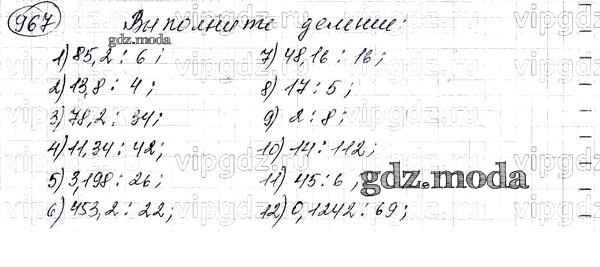 967 Выполните деление:
gdz.moda
1) 85,2 : 6 ;
2) 13,8 : 4 ;
3) 78,2 : 34;
4) 11,34 : 42;
5) 3,198 : 26;
6) 453,2 : 22;
7) 48,16 : 16;
8) 17 : 5 ;
9) 2 : 8 ;
10) 14 : 112;
11) 45 : 6 ,
12) 0,1242 : 69;
gdz.moda
vipgdz